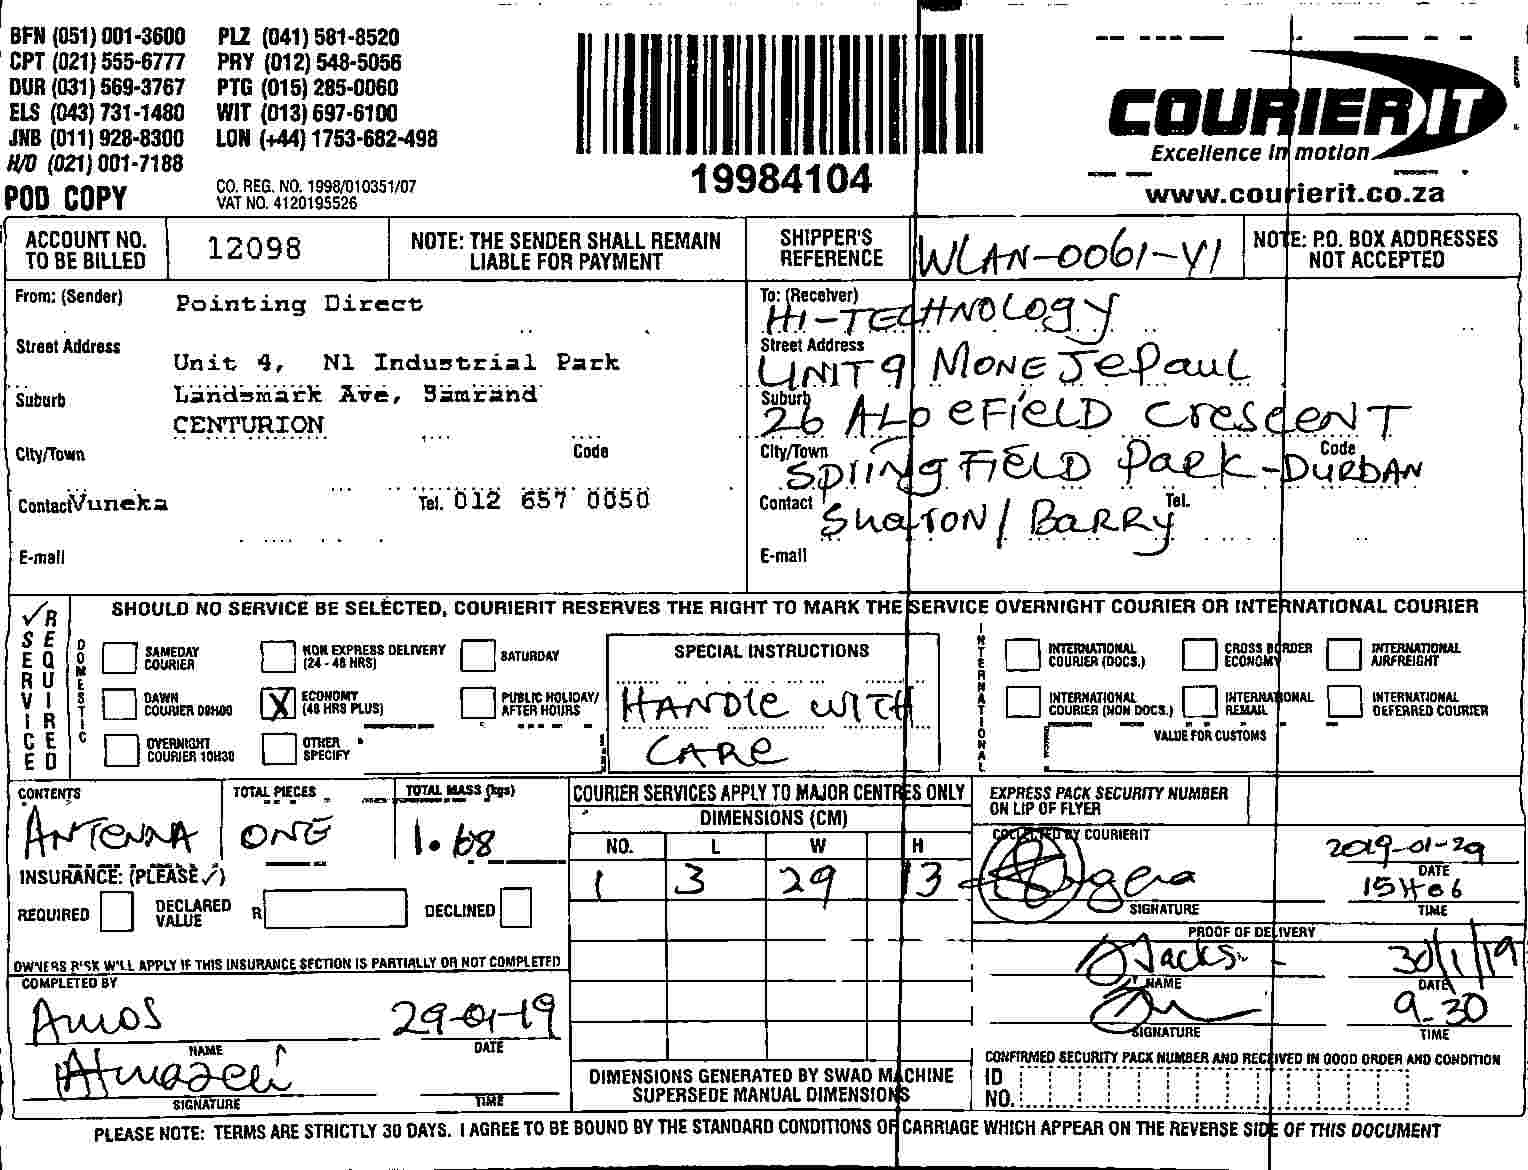 BFN (051) 001-3600 PLZ (041) 581-8520
CPT (021) 555-6777 PRY (012) 548-5056
DUR (031) 569-3767 PTG (015) 285-0060
ELS (043) 731-1480 WIT (013) 697-6100
JNB (011) 928-8300 LON (+44) 1753-682-498
H/O (021) 001-7188
POD COPY
CO. REG. NO. 1998/010351/07
VAT NO. 4120195526
19984104
COURIER IT
Excellence in motion
www.courierit.co.za
ACCOUNT NO. TO BE BILLED 12098
NOTE: THE SENDER SHALL REMAIN LIABLE FOR PAYMENT
SHIPPER'S REFERENCE WLAN-0061-V1
NOTE: P.O. BOX ADDRESSES NOT ACCEPTED
From: (Sender) Pointing Direct
Street Address Unit 4, N1 Industrial Park
Suburb Landsmark Ave, Samrand
CENTURION
City/Town Code
Contact Vuneka Tel. 012 657 0050
E-mail
To: (Receiver) Hi-TECHNOLOGY
Street Address UNIT 9 MONE JEPAUL
Suburb 26 ALPEFIELD CRESCENT
City/Town SPRINGFIELD PARK-DURBAN Code
Contact SHARON/BARRY Tel.
E-mail
SERVICE REQUIRED
SHOULD NO SERVICE BE SELECTED, COURIERIT RESERVES THE RIGHT TO MARK THE SERVICE OVERNIGHT COURIER OR INTERNATIONAL COURIER
DOMESTIC
SAMEDAY COURIER
NON EXPRESS DELIVERY (24 - 48 HRS)
SATURDAY
DAWN COURIER 08H00
X ECONOMY (48 HRS PLUS)
PUBLIC HOLIDAY/ AFTER HOURS
OVERNIGHT COURIER 10H30
OTHER SPECIFY
SPECIAL INSTRUCTIONS
HANDLE WITH
CARE
INTERNATIONAL
INTERNATIONAL COURIER (DOCS.)
CROSS BORDER ECONOMY
INTERNATIONAL AIRFREIGHT
INTERNATIONAL COURIER (NON DOCS.)
INTERNATIONAL REMAIL
INTERNATIONAL DEFERRED COURIER
VALUE FOR CUSTOMS
CONTENTS ANTENNA
TOTAL PIECES ONE
TOTAL MASS (kgs) 1.68
INSURANCE: (PLEASE ✓)
REQUIRED DECLARED VALUE R DECLINED
OWNERS RISK WILL APPLY IF THIS INSURANCE SECTION IS PARTIALLY OR NOT COMPLETED
COMPLETED BY
Amos 29-01-19
NAME DATE
SIGNATURE TIME
COURIER SERVICES APPLY TO MAJOR CENTRES ONLY
DIMENSIONS (CM)
NO. L W H
1 3 29 13
DIMENSIONS GENERATED BY SWAD MACHINE SUPERSEDE MANUAL DIMENSIONS
EXPRESS PACK SECURITY NUMBER ON LIP OF FLYER
COLLECTED BY COURIERIT
2019-01-29
DATE
15H06
SIGNATURE TIME
PROOF OF DELIVERY
Jacks 30/1/19
NAME DATE
9-30
SIGNATURE TIME
CONFIRMED SECURITY PACK NUMBER AND RECEIVED IN GOOD ORDER AND CONDITION
ID NO.
PLEASE NOTE: TERMS ARE STRICTLY 30 DAYS. I AGREE TO BE BOUND BY THE STANDARD CONDITIONS OF CARRIAGE WHICH APPEAR ON THE REVERSE SIDE OF THIS DOCUMENT